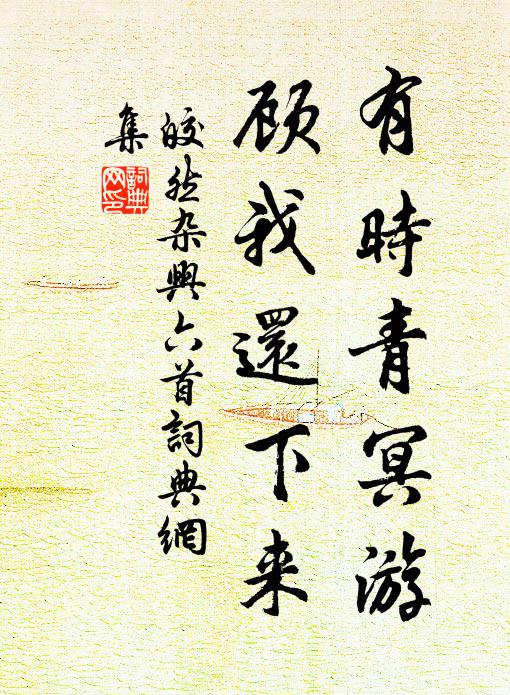 有時青冥游
顾我還下来
皎然杂興六首詞典網
集
詞典
网印